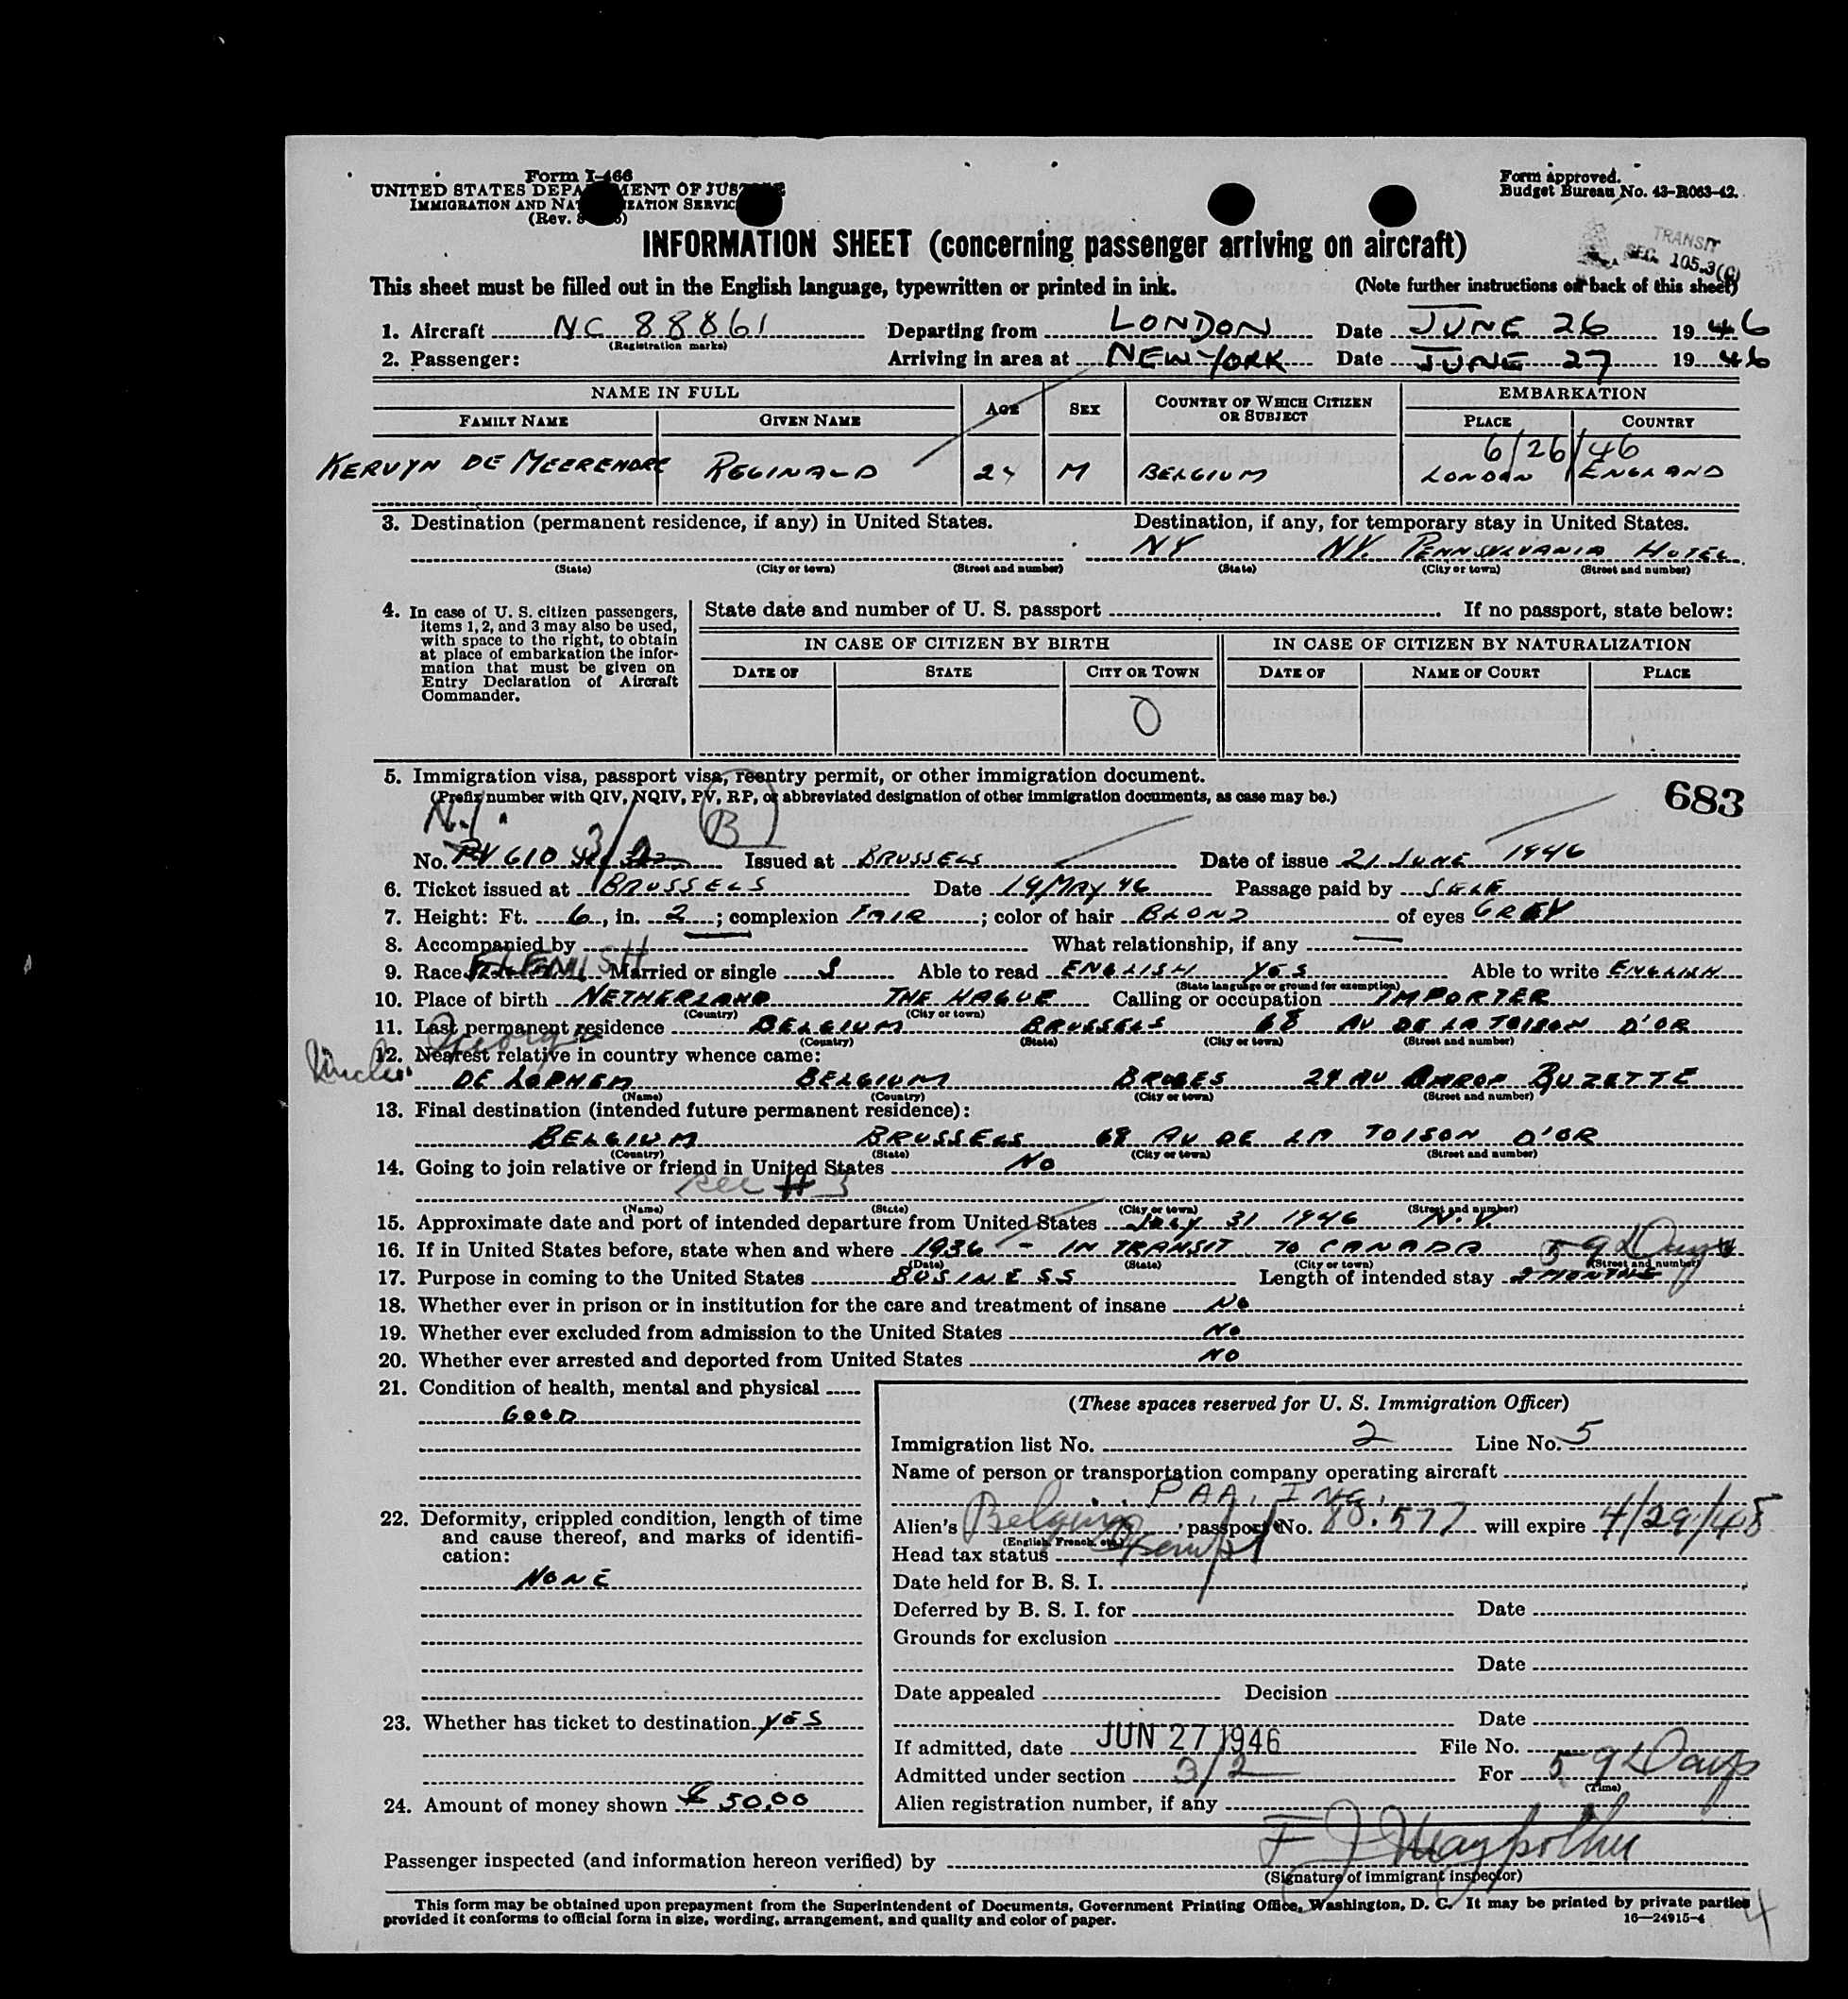 Form I-466
UNITED STATES DEPARTMENT OF JUSTICE
IMMIGRATION AND NATURALIZATION SERVICE
(Rev.
Form approved.
Budget Bureau No. 43-R063-42.
TRANSIT
SEC. 105.3(C)
INFORMATION SHEET (concerning passenger arriving on aircraft)
This sheet must be filled out in the English language, typewritten or printed in ink. (Note further instructions on back of this sheet)
1. Aircraft NC 88861 Departing from LONDON Date JUNE 26 1946
(Registration marks)
2. Passenger: Arriving in area at NEW YORK Date JUNE 27 1946
NAME IN FULL AGE SEX COUNTRY OF WHICH CITIZEN OR SUBJECT EMBARKATION
FAMILY NAME GIVEN NAME PLACE COUNTRY
6/26/46
KERVYN DE MEERENDRE REGINALD 24 M BELGIUM LONDON ENGLAND
3. Destination (permanent residence, if any) in United States. Destination, if any, for temporary stay in United States.
NY NY. PENNSYLVANIA HOTEL
(State) (City or town) (Street and number) (State) (City or town) (Street and number)
4. In case of U. S. citizen passengers, items 1, 2, and 3 may also be used, with space to the right, to obtain at place of embarkation the information that must be given on Entry Declaration of Aircraft Commander.
State date and number of U. S. passport If no passport, state below:
IN CASE OF CITIZEN BY BIRTH IN CASE OF CITIZEN BY NATURALIZATION
DATE OF STATE CITY OR TOWN DATE OF NAME OF COURT PLACE
0
5. Immigration visa, passport visa, reentry permit, or other immigration document.
(Prefix number with QIV, NQIV, PV, RP, or abbreviated designation of other immigration documents, as case may be.)
683
N.I. 3/2 (B)
No. PV 610 Issued at BRUSSELS Date of issue 21 JUNE 1946
6. Ticket issued at BRUSSELS Date 14 MAY 46 Passage paid by SELF
7. Height: Ft. 6, in. 2; complexion FAIR; color of hair BLOND of eyes GREY
8. Accompanied by What relationship, if any
9. Race FLEMISH Married or single S Able to read ENGLISH YES Able to write ENGLISH
(State language or ground for exemption)
10. Place of birth NETHERLAND THE HAGUE Calling or occupation IMPORTER
(Country) (City or town)
11. Last permanent residence BELGIUM BRUSSELS 68 AV DE LA TOISON D'OR
(Country) (State) (City or town) (Street and number)
George
Uncle
12. Nearest relative in country whence came:
BELGIUM BRUGES 24 AV
(Name) (Country) (City or town) (Street and number)
13. Final destination (intended future permanent residence):
BELGIUM BRUSSELS 68 AV DE LA TOISON D'OR
(Country) (State) (City or town) (Street and number)
14. Going to join relative or friend in United States No
see # 3
(Name) (State) (City or town) (Street and number)
15. Approximate date and port of intended departure from United States July 31 1946 N.Y.
16. If in United States before, state when and where 1936 - IN TRANSIT TO CANADA
(Date) (State) (City or town) (Street and number)
59 Days
17. Purpose in coming to the United States BUSINESS Length of intended stay 2 MONTHS
18. Whether ever in prison or in institution for the care and treatment of insane No
19. Whether ever excluded from admission to the United States No
20. Whether ever arrested and deported from United States NO
21. Condition of health, mental and physical
GOOD
22. Deformity, crippled condition, length of time and cause thereof, and marks of identification:
NONE
23. Whether has ticket to destination YES
24. Amount of money shown $ 50.00
(These spaces reserved for U. S. Immigration Officer)
Immigration list No. 2 Line No. 5
Name of person or transportation company operating aircraft
PAA. INC.
Alien's Belgium passport No. 80.577 will expire 4/29/48
(English, French, etc.)
Head tax status Exempt
Date held for B. S. I.
Deferred by B. S. I. for Date
Grounds for exclusion
Date
Date appealed Decision
Date
If admitted, date JUN 27 1946 File No.
Admitted under section 3/2 For 59 Days
(Time)
Alien registration number, if any
Passenger inspected (and information hereon verified) by
(Signature of immigrant inspector)
This form may be obtained upon prepayment from the Superintendent of Documents, Government Printing Office, Washington, D. C. It may be printed by private parties
provided it conforms to official form in size, wording, arrangement, and quality and color of paper.
16—24915-4
4